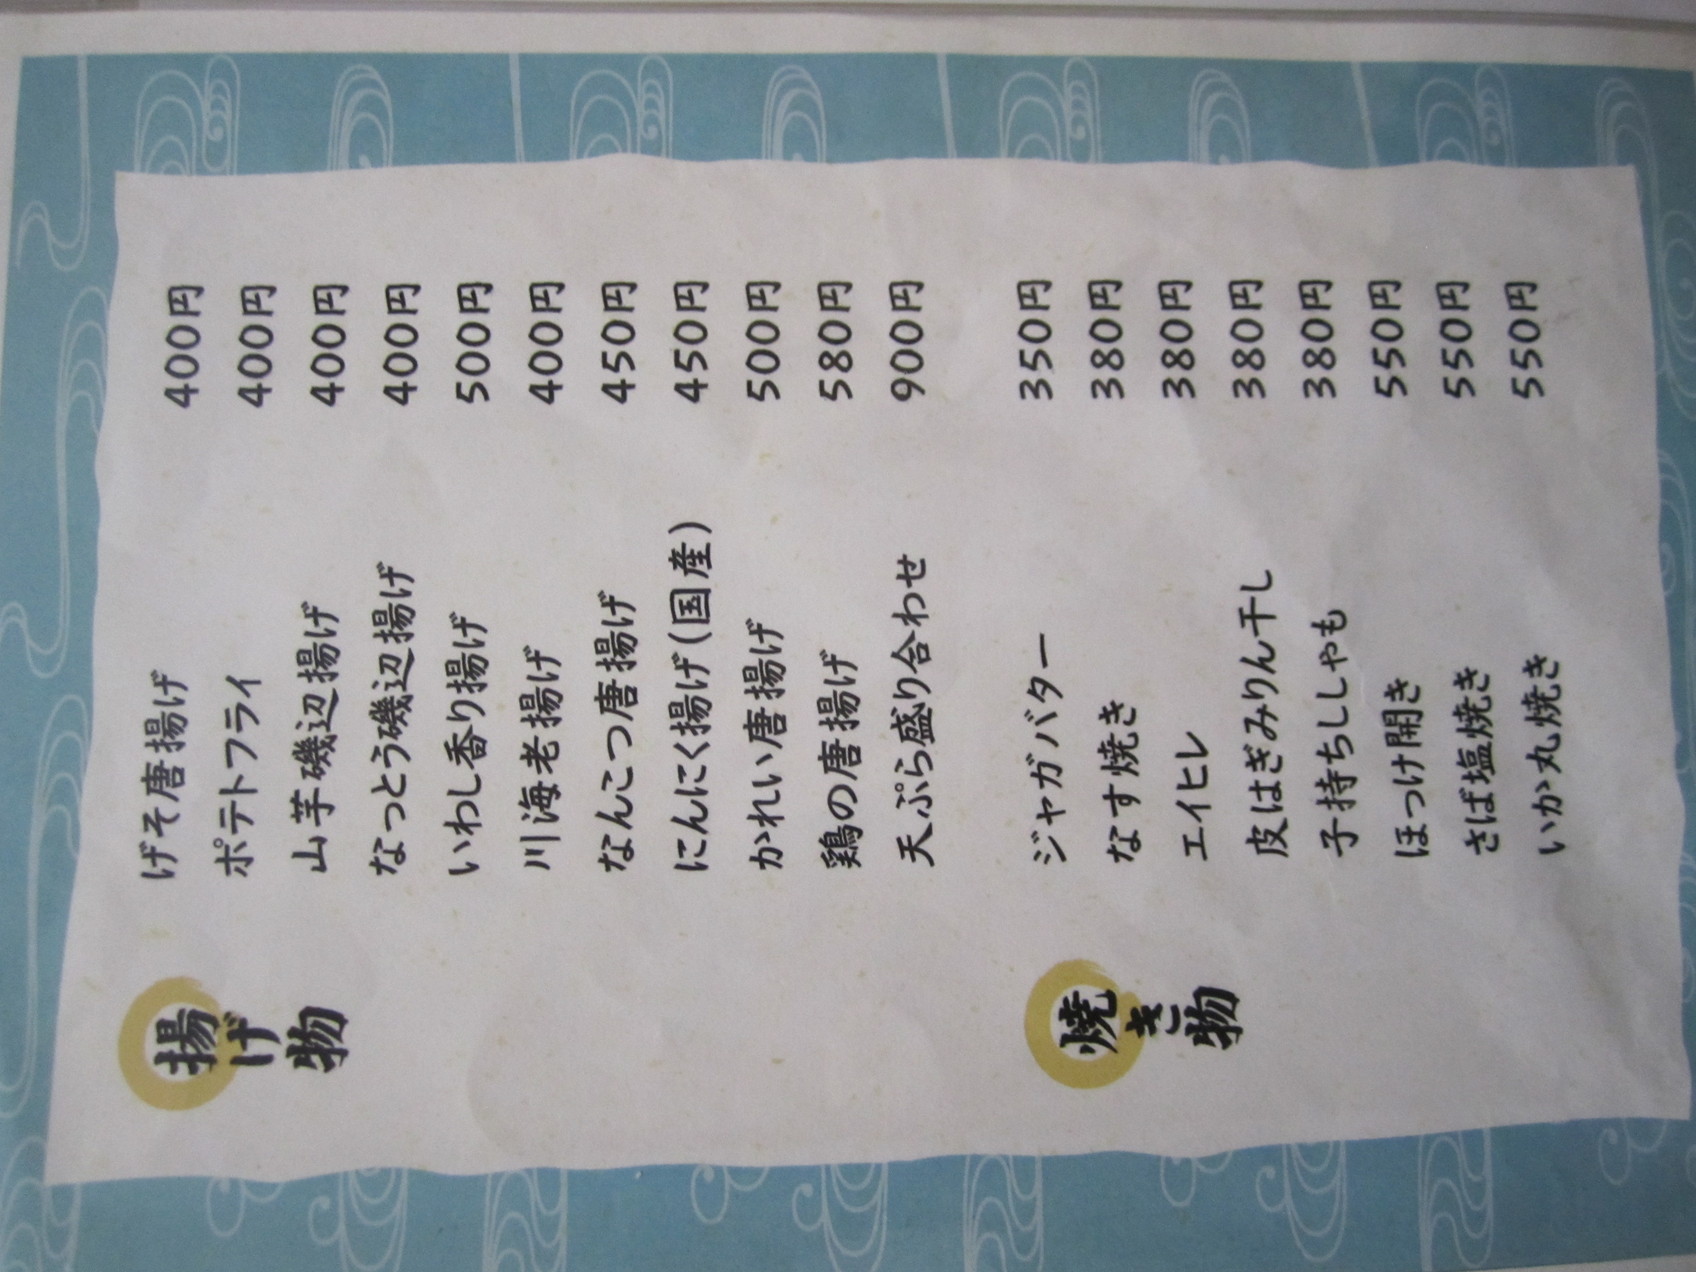 揚げ物
げそ唐揚げ 400円
ポテトフライ 400円
山芋磯辺揚げ 400円
なっとう磯辺揚げ 400円
いわし香り揚げ 500円
川海老揚げ 400円
なんこつ唐揚げ 450円
にんにく揚げ(国産) 450円
かれい唐揚げ 500円
鶏の唐揚げ 580円
天ぷら盛り合わせ 900円
焼き物
ジャガバター 350円
なす焼き 380円
エイヒレ 380円
皮はぎみりん干し 380円
子持ちししゃも 380円
ほっけ開き 550円
さば塩焼き 550円
いか丸焼き 550円